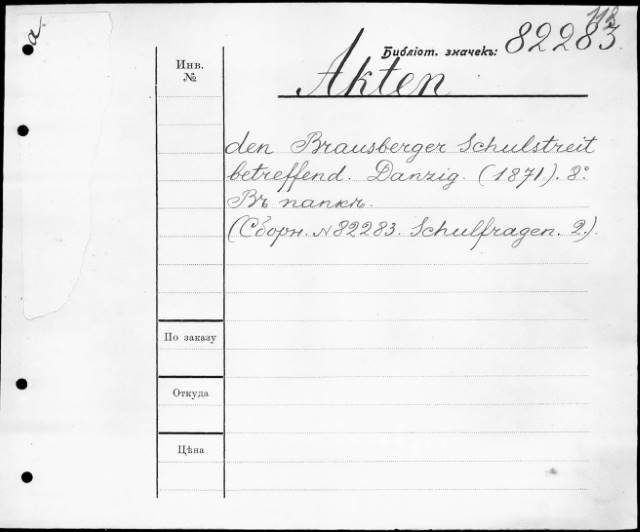 118
a.
Библіот. значекъ: 82283.
Инв.
№
Akten
den Brausberger Schulstreit
betreffend. Danzig. (1871). 8°
Въ папкѣ.
(Сборн. №82283. Schulfragen. 2.).
По заказу
Откуда
Цѣна